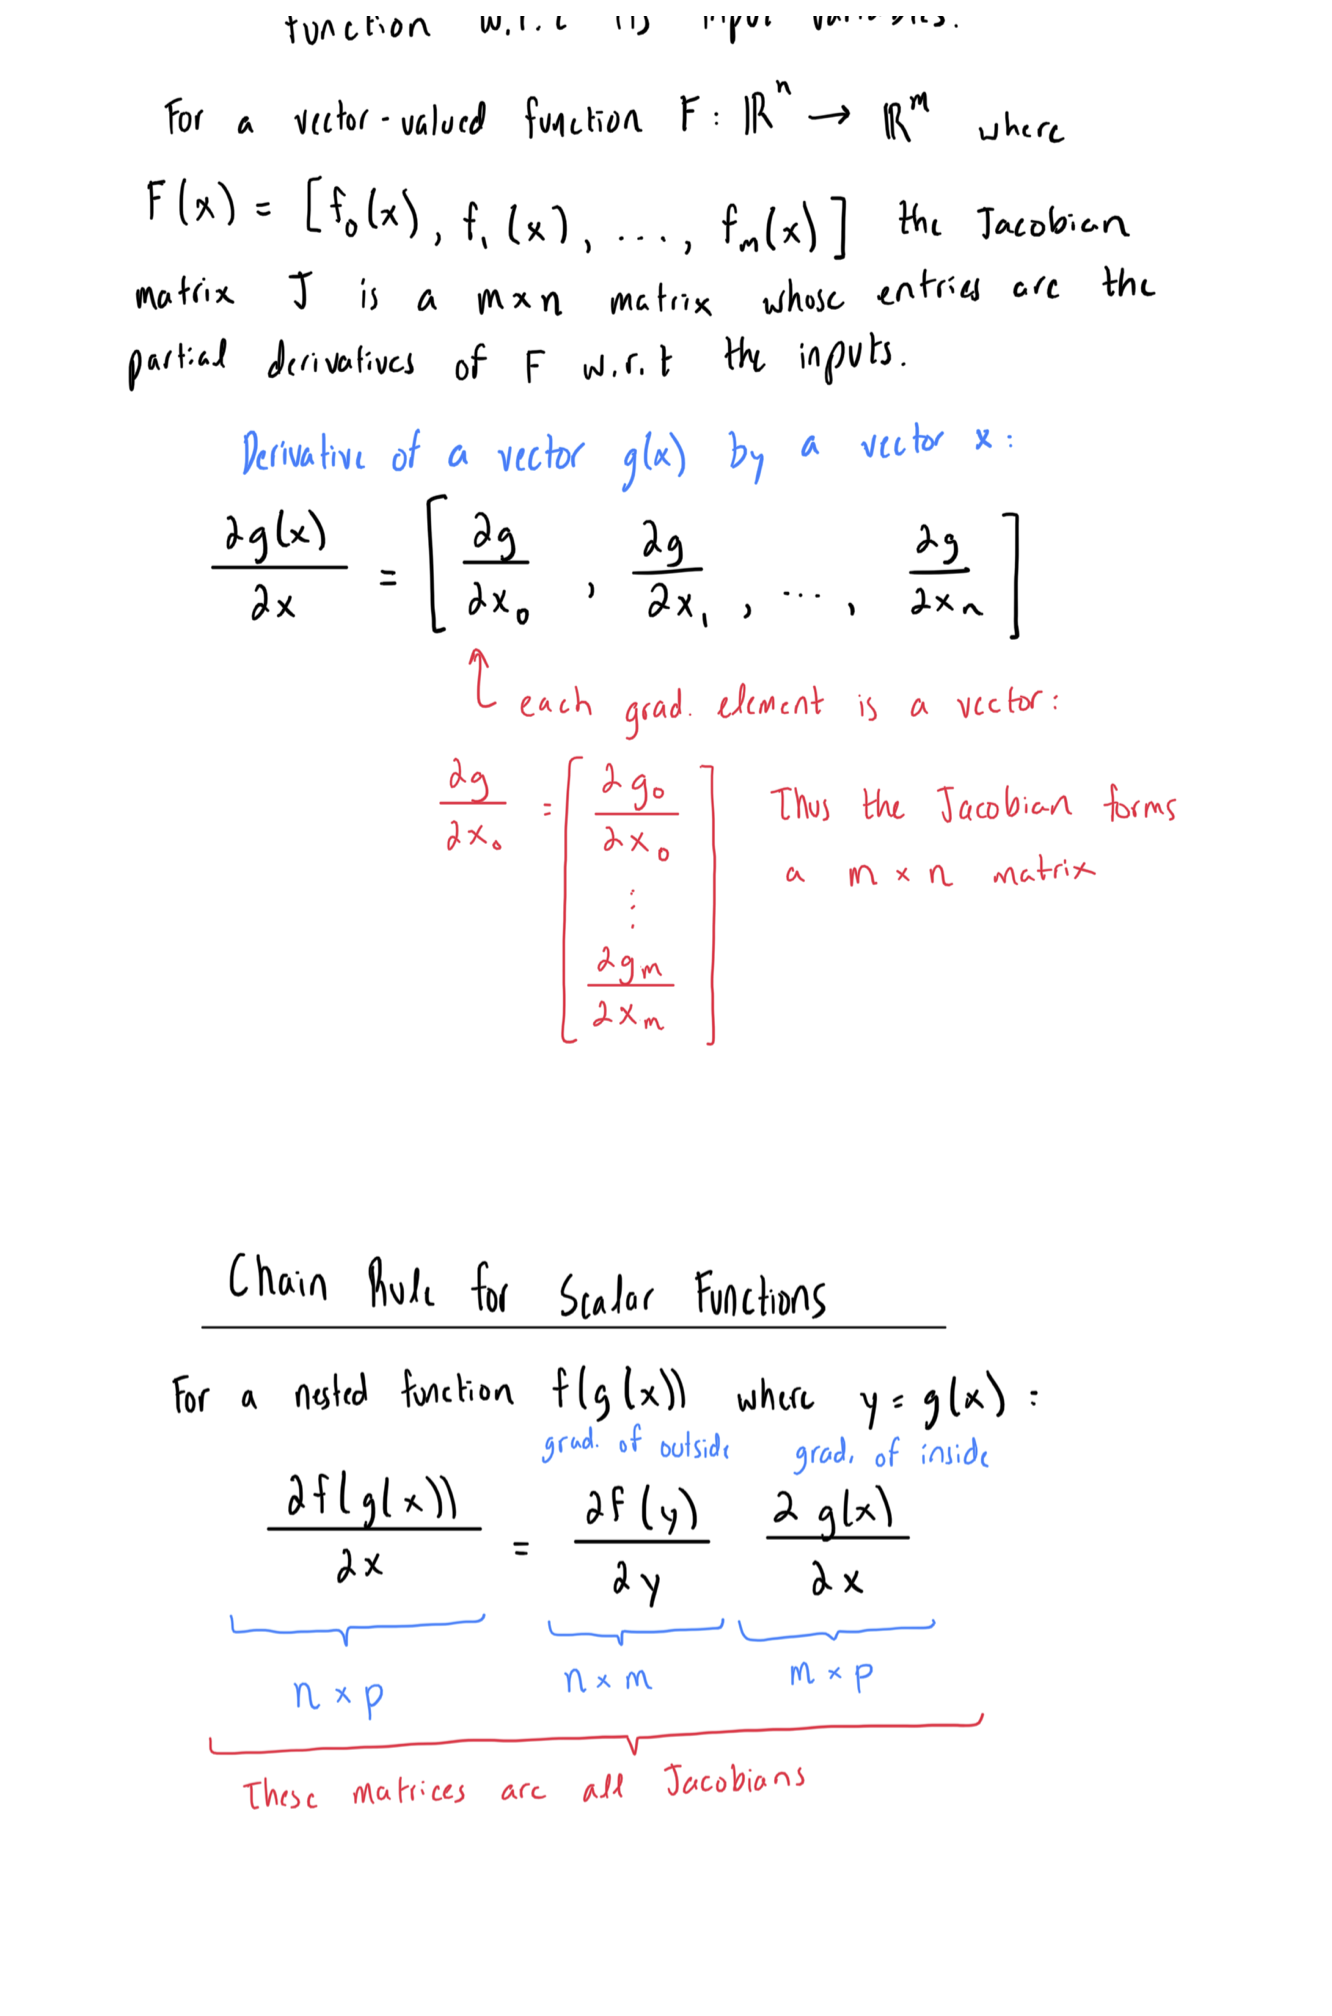 function w.r.t its input variables.
For a vector-valued function F: ℝⁿ → ℝᵐ where
F(x) = [f₀(x), f₁(x), ..., fₘ(x)] the Jacobian
matrix J is a m×n matrix whose entries are the
partial derivatives of F w.r.t the inputs.
Derivative of a vector g(x) by a vector x:
∂g(x)/∂x = [∂g/∂x₀, ∂g/∂x₁, ..., ∂g/∂xₙ]
each grad. element is a vector:
∂g/∂x₀ = [∂g₀/∂x₀ ⋮ ∂gₘ/∂xₘ]
Thus the Jacobian forms
a m × n matrix
Chain Rule for Scalar Functions
For a nested function f(g(x)) where y = g(x):
grad. of outside grad. of inside
∂f(g(x))/∂x = ∂f(y)/∂y ∂g(x)/∂x
n × p n × m m × p
These matrices are all Jacobians